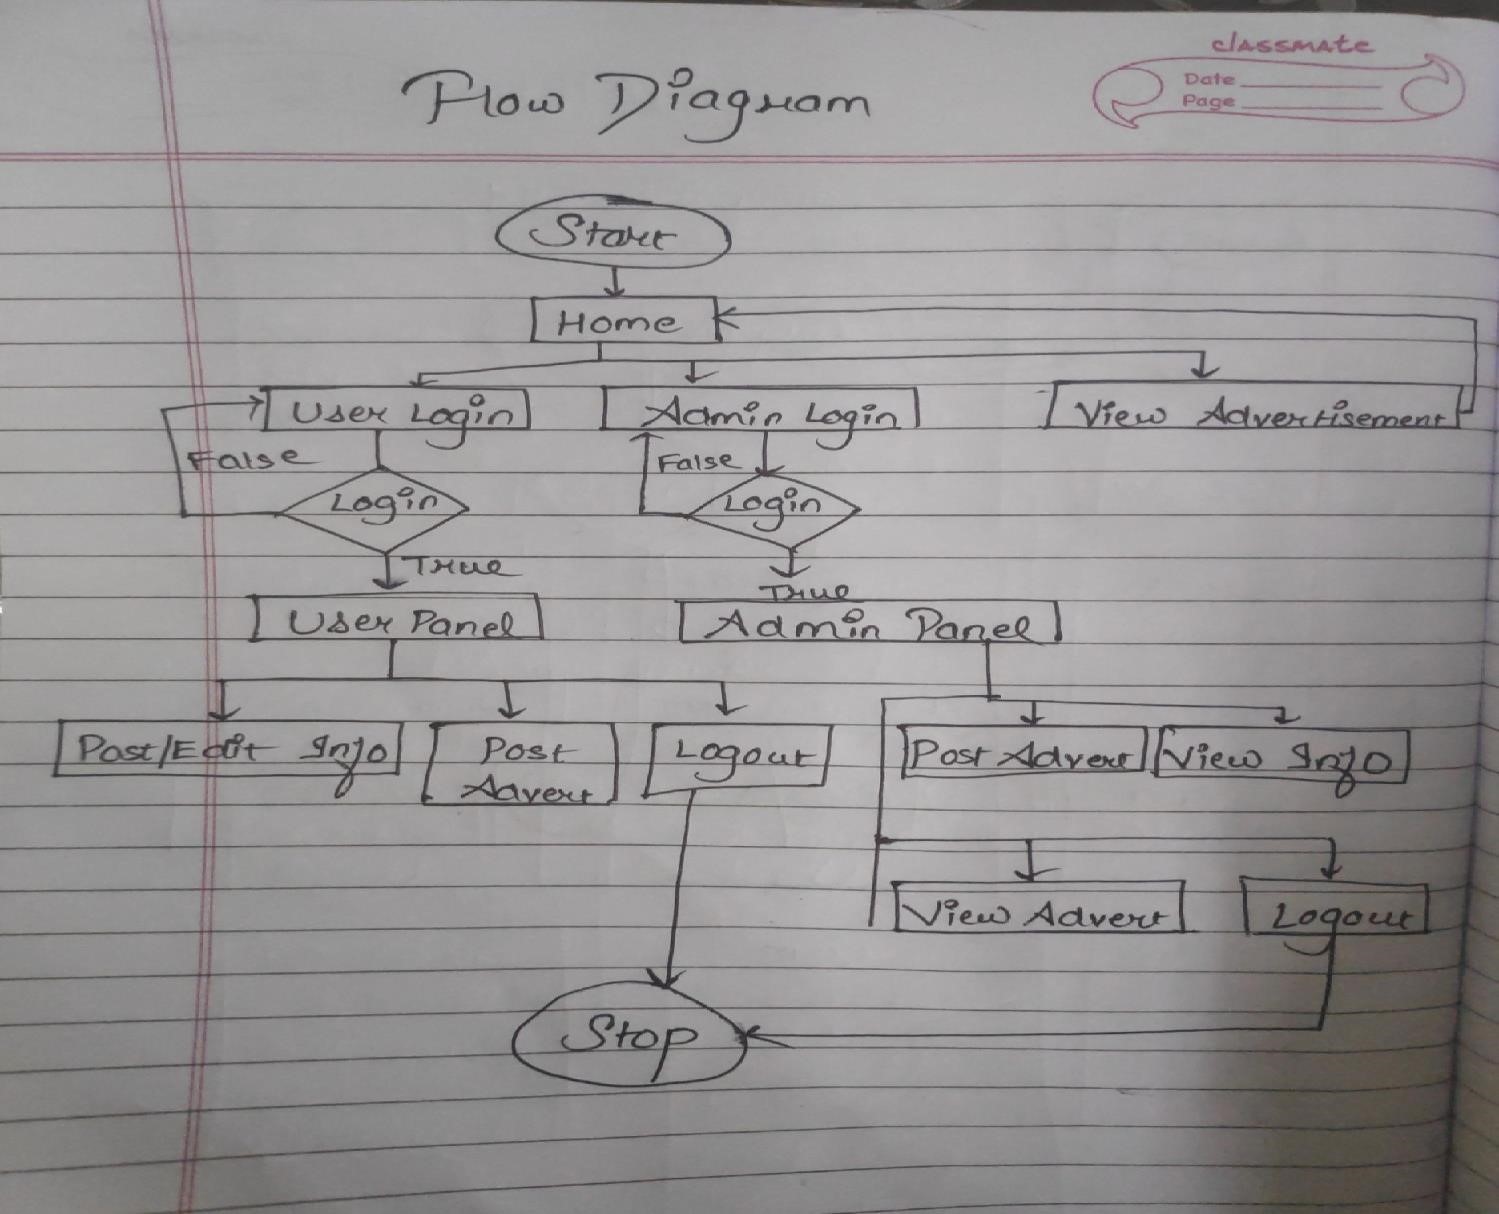 classmate
Date
Page
Flow Diagram
Start
Home
User Login
Admin Login
View Advertisement
False
False
Login
Login
True
True
User Panel
Admin Panel
Post/Edit Info
Post
Advert
Logout
Post Advert
View Info
View Advert
Logout
Stop